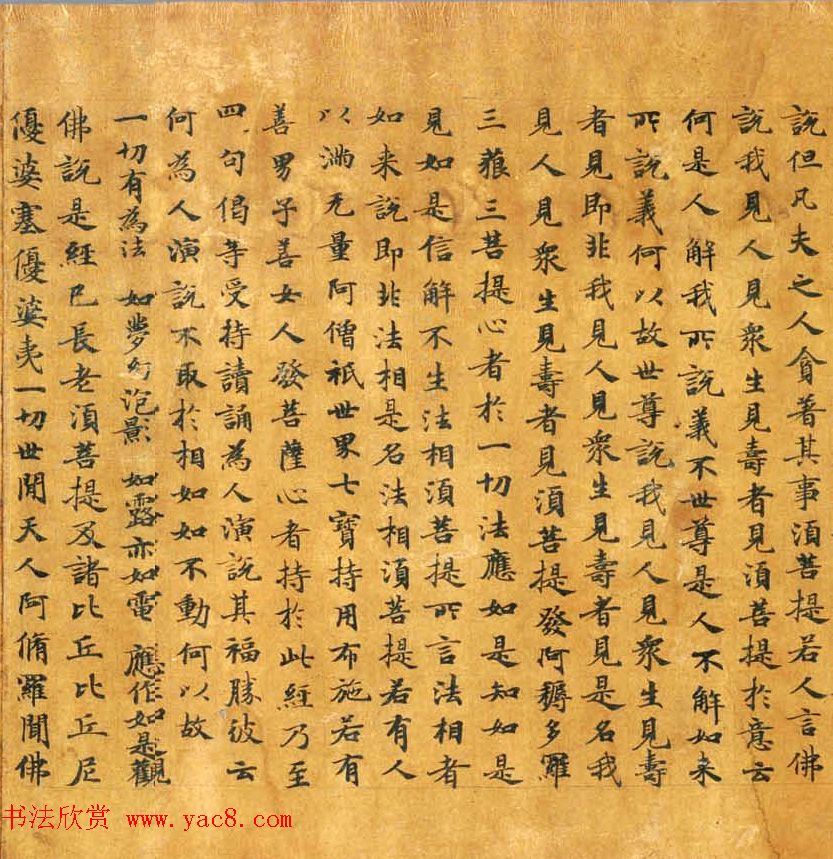 說但凡夫之人貪著其事須菩提若人言佛
說我見人見衆生見壽者見須菩提於意云
何是人解我所說義不世尊是人不解如来
所說義何以故世尊說我見人見衆生見壽
者見即非我見人見衆生見壽者見是名我
見人見衆生見壽者見須菩提發阿耨多羅
三藐三菩提心者於一切法應如是知如是
見如是信解不生法相須菩提所言法相者
如来說即非法相是名法相須菩提若有人
以滿无量阿僧祇世界七寶持用布施若有
善男子善女人發菩薩心者持於此經乃至
四句偈等受持讀誦為人演說其福勝彼云
何為人演說不取於相如如不動何以故
一切有為法 如夢幻泡影 如露亦如電 應作如是觀
佛說是經已長老須菩提及諸比丘比丘尼
優婆塞優婆夷一切世間天人阿脩羅聞佛
书法欣赏 www.yac8.com